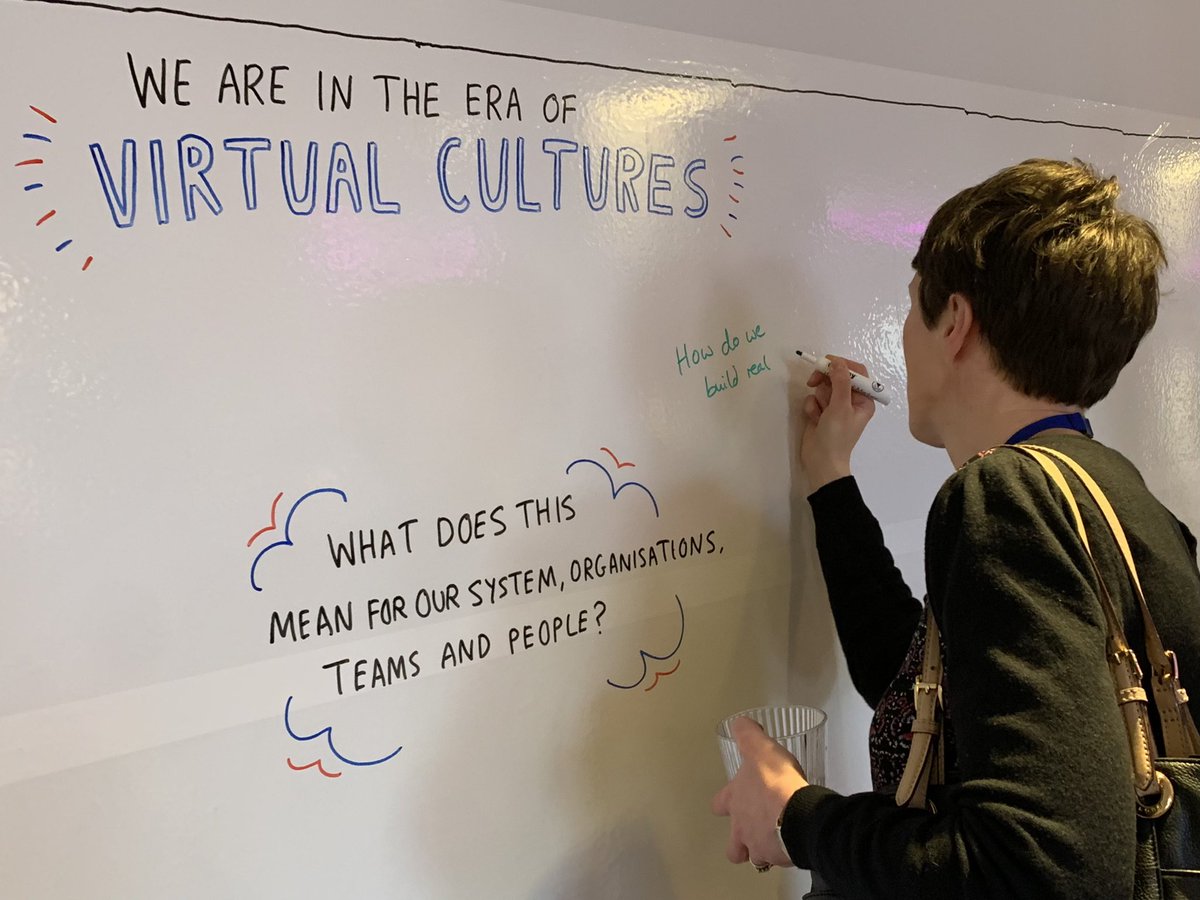 WE ARE IN THE ERA OF
VIRTUAL CULTURES
How do we
build real
WHAT DOES THIS
MEAN FOR OUR SYSTEM, ORGANISATIONS,
TEAMS AND PEOPLE?